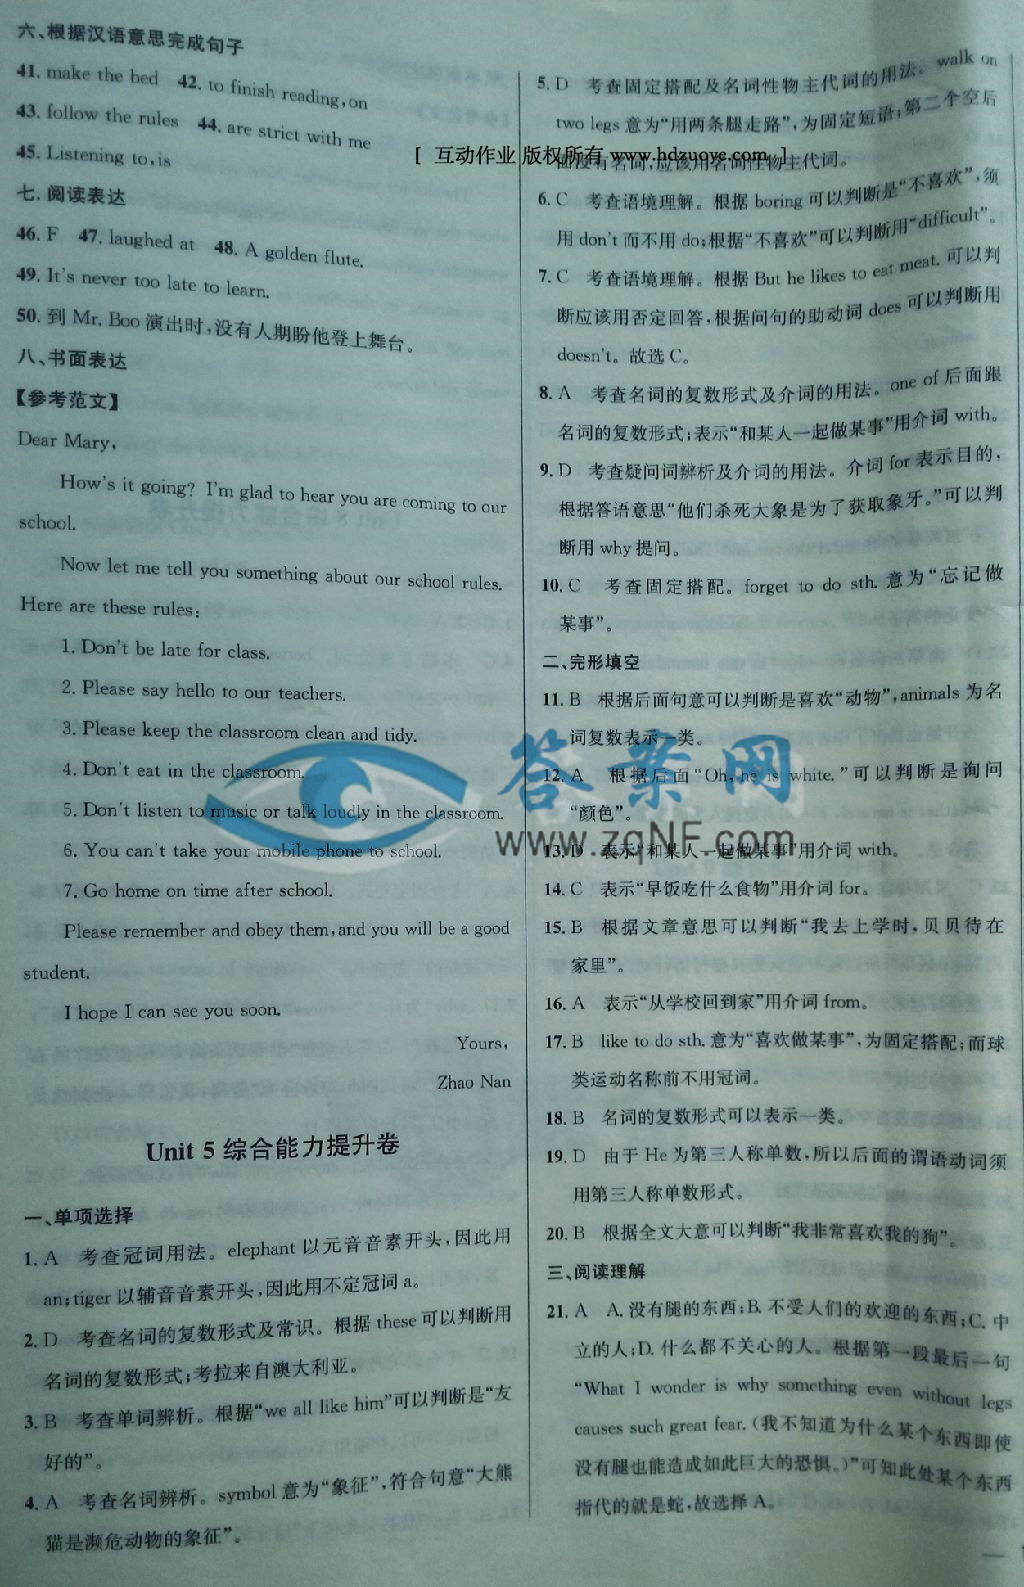 六、根据汉语意思完成句子
41. make the bed 42. to finish reading, on
43. follow the rules 44. are strict with me
45. Listening to, is
七. 阅读表达
46. F 47. laughed at 48. A golden flute.
49. It's never too late to learn.
50. 到 Mr. Boo 演出时,没有人期盼他登上舞台。
八、书面表达
【参考范文】
Dear Mary,
How's it going? I'm glad to hear you are coming to our
school.
Now let me tell you something about our school rules.
Here are these rules:
1. Don't be late for class.
2. Please say hello to our teachers.
3. Please keep the classroom clean and tidy.
4. Don't eat in the classroom.
5. Don't listen to music or talk loudly in the classroom.
6. You can't take your mobile phone to school.
7. Go home on time after school.
Please remember and obey them, and you will be a good
student.
I hope I can see you soon.
Yours,
Zhao Nan
Unit 5 综合能力提升卷
一、单项选择
1. A 考查冠词用法。elephant 以元音音素开头,因此用
an;tiger 以辅音音素开头,因此用不定冠词 a。
2. D 考查名词的复数形式及常识。根据 these 可以判断用
名词的复数形式;考拉来自澳大利亚。
3. B 考查单词辨析。根据“we all like him”可以判断是“友
好的”。
4. A 考查名词辨析。symbol 意为“象征”,符合句意“大熊
猫是濒危动物的象征”。
5. D 考查固定搭配及名词性物主代词的用法。walk on
two legs 意为“用两条腿走路”,为固定短语;第二个空后
[ 互动作业 版权所有 www.hdzuoye.com ]
面没有名词,应该用名词性物主代词。
6. C 考查语境理解。根据 boring 可以判断是“不喜欢”,须
用 don't 而不用 do;根据“不喜欢”可以判断用“difficult”。
7. C 考查语境理解。根据 But he likes to eat meat. 可以判
断应该用否定回答,根据问句的助动词 does 可以判断用
doesn't。故选 C。
8. A 考查名词的复数形式及介词的用法。one of 后面跟
名词的复数形式;表示“和某人一起做某事”用介词 with。
9. D 考查疑问词辨析及介词的用法。介词 for 表示目的,
根据答语意思“他们杀死大象是为了获取象牙。”可以判
断用 why 提问。
10. C 考查固定搭配。forget to do sth. 意为“忘记做
某事”。
二、完形填空
11. B 根据后面句意可以判断是喜欢“动物”,animals 为名
词复数表示一类。
12. A 根据后面“Oh, he is white.”可以判断是询问
“颜色”。
答案网
www.zqNF.com
13. D 表示“和某人一起做某事”用介词 with。
14. C 表示“早饭吃什么食物”用介词 for。
15. B 根据文章意思可以判断“我去上学时,贝贝待在
家里”。
16. A 表示“从学校回到家”用介词 from。
17. B like to do sth. 意为“喜欢做某事”,为固定搭配;而球
类运动名称前不用冠词。
18. B 名词的复数形式可以表示一类。
19. D 由于 He 为第三人称单数,所以后面的谓语动词须
用第三人称单数形式。
20. B 根据全文大意可以判断“我非常喜欢我的狗”。
三、阅读理解
21. A A. 没有腿的东西;B. 不受人们的欢迎的东西;C. 中
立的人;D. 什么都不关心的人。根据第一段最后一句
“What I wonder is why something even without legs
causes such great fear. (我不知道为什么某个东西即使
没有腿也能造成如此巨大的恐惧。)”可知此处某个东西
指代的就是蛇,故选择 A。